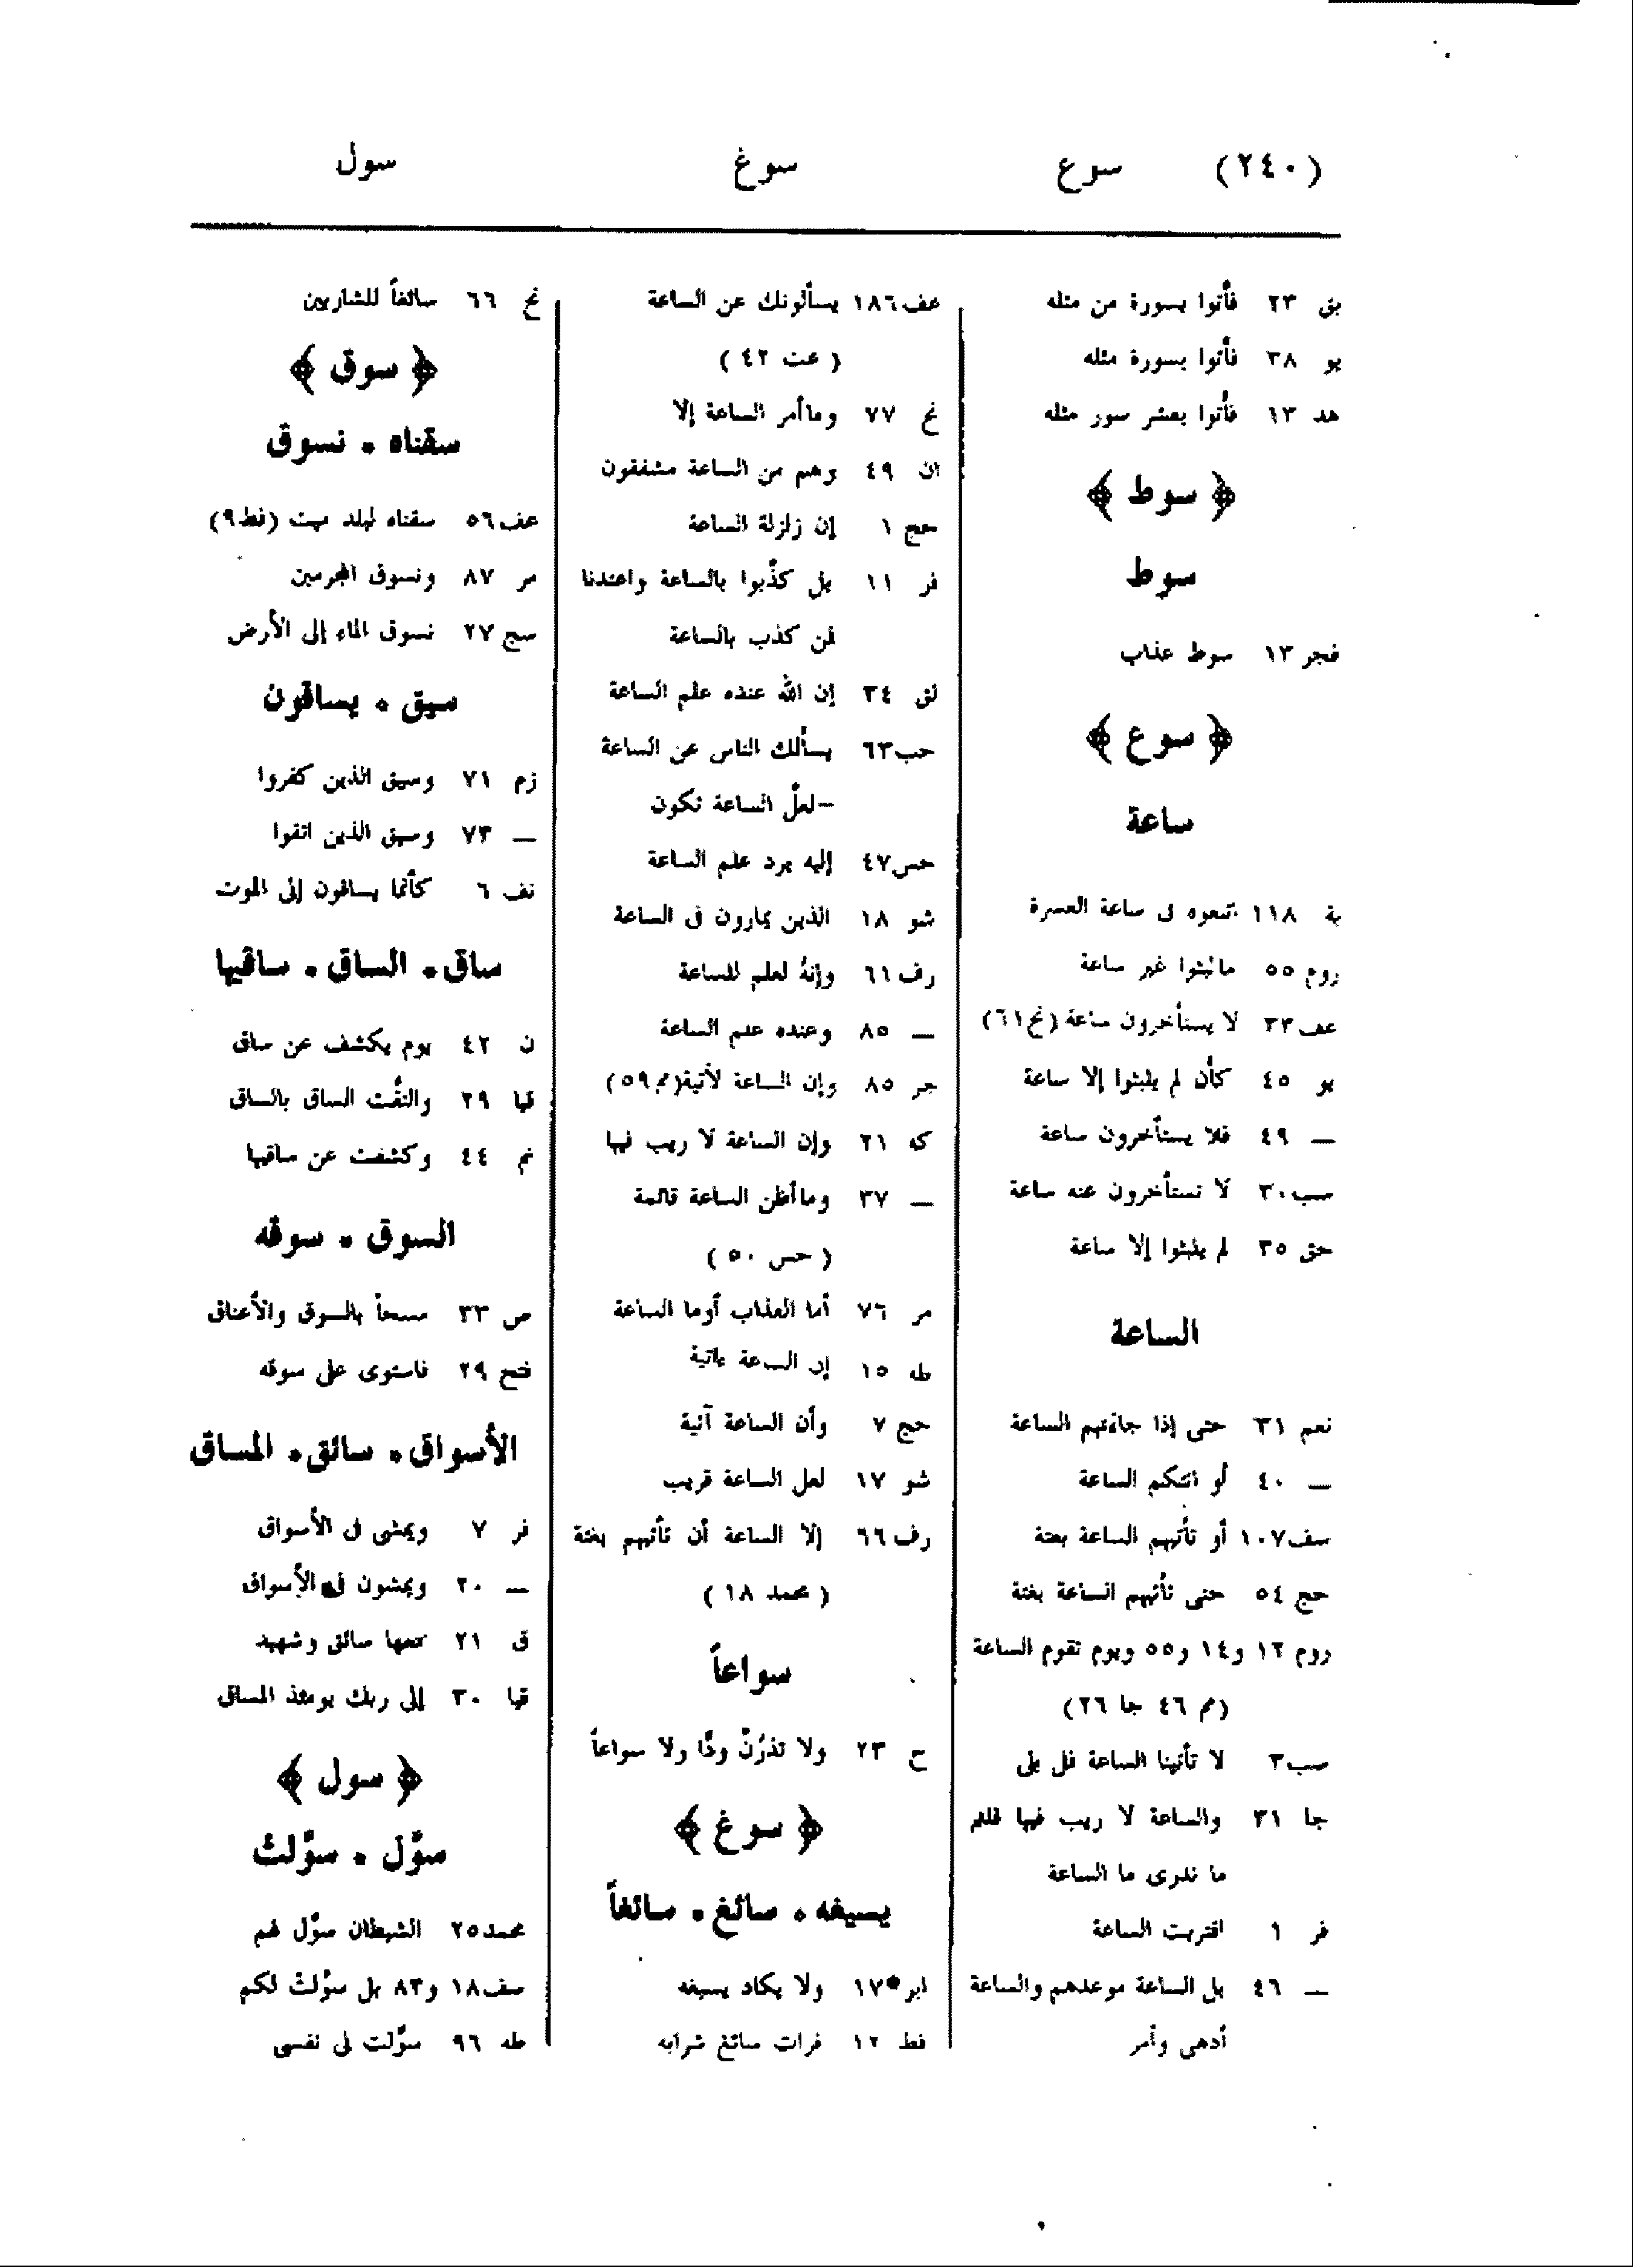 (٢٤٠) سوع سوغ سول
بق ٢٣ فأتوا بسورة من مثله
يو ٣٨ فأتوا بسورة مثله
هد ١٣ فأتوا بعشر سور مثله
﴿ سوط ﴾
سوط
فجر ١٣ سوط عذاب
﴿ سوع ﴾
ساعة
بة ١١٨ اتبعوه فى ساعة العسرة
روم ٥٥ مالبثوا غير ساعة
عف ٣٣ لا يستأخرون ساعة (نح ٦١)
يو ٤٥ كأن لم يلبثوا إلا ساعة
— ٤٩ فلا يستأخرون ساعة
سب ٣٠ لا تستأخرون عنه ساعة
حق ٣٥ لم يلبثوا إلا ساعة
الساعة
نعم ٣١ حتى إذا جاءتهم الساعة
— ٤٠ أو اتتكم الساعة
سف ١٠٧ أو تأتيهم الساعة بغتة
حج ٥٤ حتى تأتيهم الساعة بغتة
روم ١٢ و١٤ و٥٥ ويوم تقوم الساعة
(مم ٤٦ جا ٢٦)
سب ٣ لا تأتينا الساعة قل بلى
جا ٣١ والساعة لا ريب فيها قلتم
ما ندرى ما الساعة
قر ١ اقتربت الساعة
— ٤٦ بل الساعة موعدهم والساعة
أدهى وأمر
عف ١٨٦ يسألونك عن الساعة
( عت ٤٢ )
نح ٧٧ وماأمر الساعة إلا
ان ٤٩ وهم من الساعة مشفقون
حج ١ إن زلزلة الساعة
فر ١١ بل كذّبوا بالساعة واعتدنا
لمن كذب بالساعة
لق ٣٤ إن الله عنده علم الساعة
حب ٦٣ يسألك الناس عن الساعة
–لعلّ الساعة تكون
حس ٤٧ إليه يرد علم الساعة
شو ١٨ الذين يمارون فى الساعة
رف ٦١ وإنهُ لعلم للساعة
— ٨٥ وعنده علم الساعة
جر ٨٥ وإن الساعة لآتية (مم ٥٩)
كه ٢١ وإن الساعة لا ريب فيها
— ٣٧ وماأظن الساعة قائمة
( حس ٥٠ )
مر ٧٦ أما العذاب أوما الساعة
طه ١٥ إن الساعة ءاتية
حج ٧ وأن الساعة آتية
شو ١٧ لعل الساعة قريب
رف ٦٦ إلا الساعة أن تأتيهم بغتة
( محمد ١٨ )
سواعاً
ح ٢٣ ولا تذرُنّ ودًّا ولا سواعاً
﴿ سوغ ﴾
يسيغه . سائغ . سائغاً
ابر* ١٧ ولا يكاد يسيغه
فط ١٢ فرات سائغ شرابه
نح ٦٦ سائغاً للشاربين
﴿ سوق ﴾
سقناه . نسوق
عف ٥٦ سقناه لبلد ميت (فط ٩)
مر ٨٧ ونسوق المجرمين
سج ٢٧ نسوق الماء إلى الأرض
سيق . يساقون
زم ٧١ وسيق الذين كفروا
— ٧٣ وسيق الذين اتقوا
نف ٦ كأنما يساقون إلى الموت
ساق . الساق . ساقيها
ن ٤٢ يوم يكشف عن ساق
قيا ٢٩ والتفّت الساق بالساق
نم ٤٤ وكشفت عن ساقيها
السوق . سوقه
ص ٣٣ مسحاً بالسوق والأعناق
فتح ٢٩ فاستوى على سوقه
الأسواق . سائق . المساق
فر ٧ ويمشى فى الأسواق
— ٢٠ ويمشون فى الأسواق
ق ٢١ معها سائق وشهيد
قيا ٣٠ إلى ربك يومئذ المساق
﴿ سول ﴾
سوّل . سوّلت
محمد ٢٥ الشيطان سوّل لهم
سف ١٨ و٨٣ بل سوّلت لكم
طه ٩٦ سوّلت لى نفسى